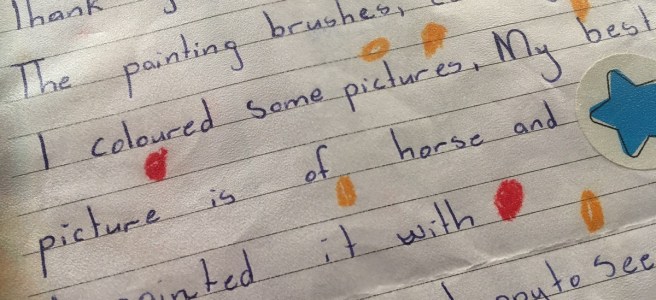 Thank
The painting brushes,
I coloured some pictures, My best
picture is of horse and
it with
to see